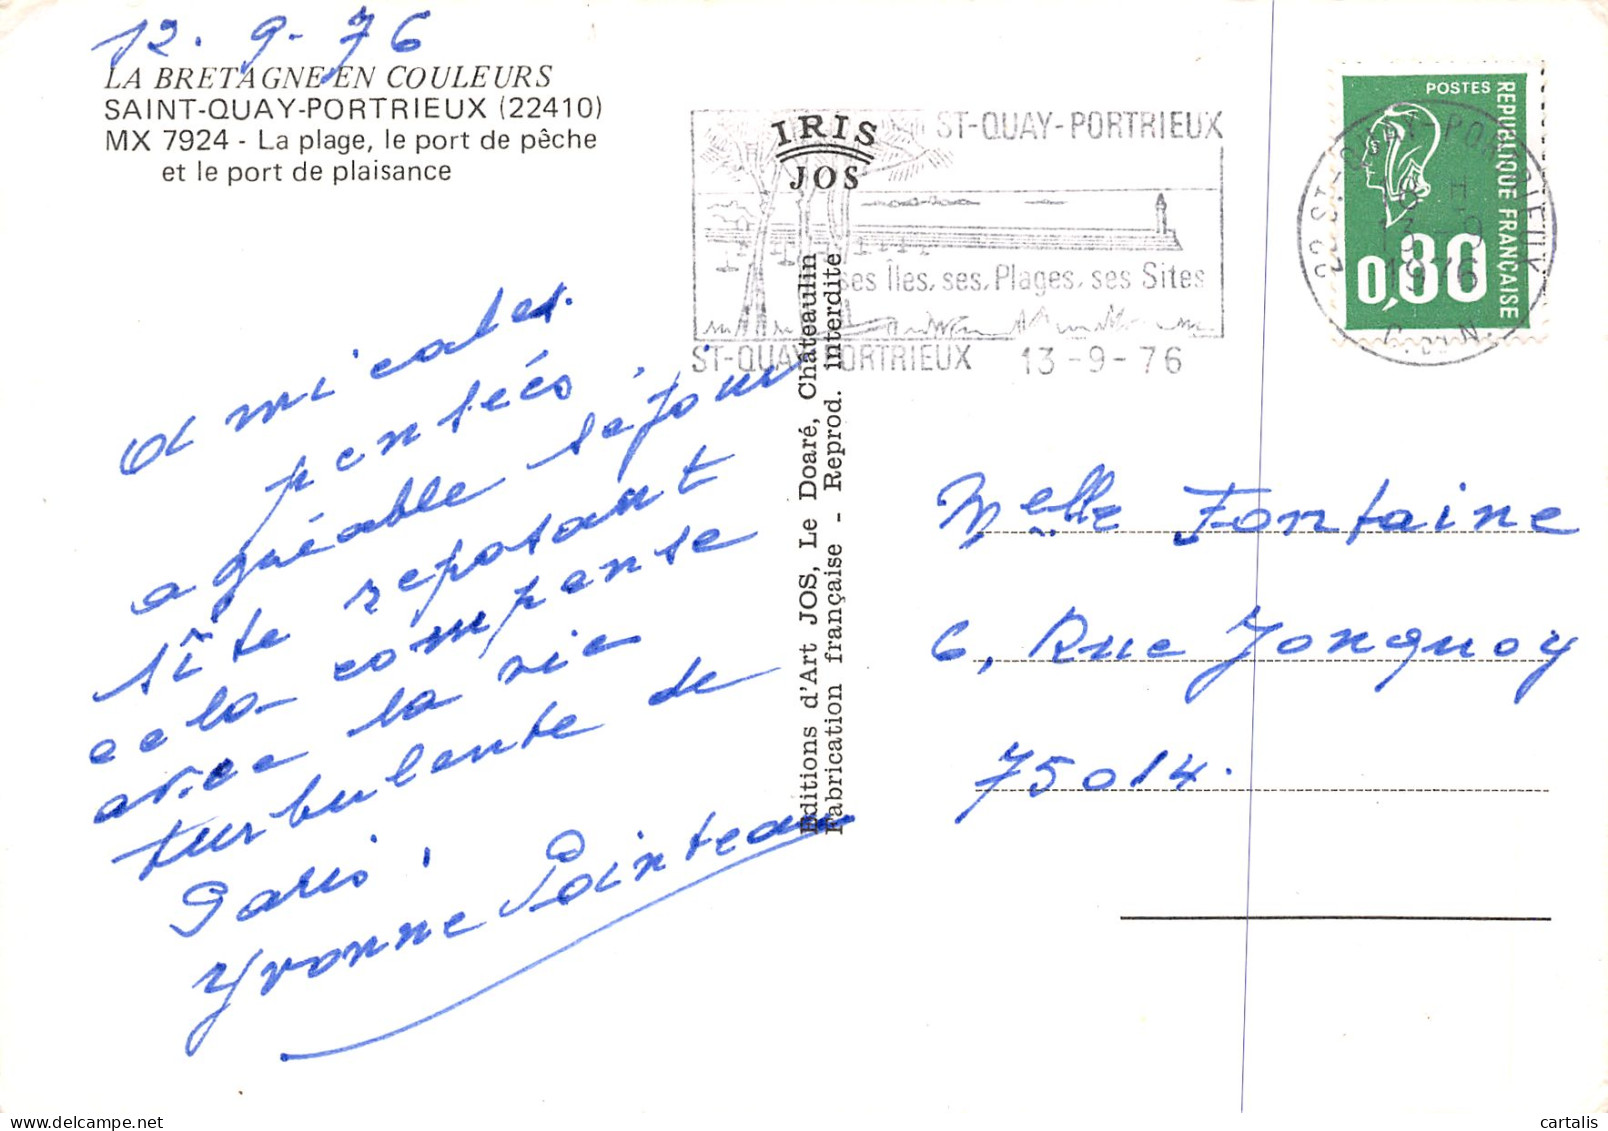 12.9-76
LA BRETAGNE EN COULEURS
SAINT-QUAY-PORTRIEUX (22410)
MX 7924 - La plage, le port de pêche
et le port de plaisance
IRIS
JOS
ST-QUAY-PORTRIEUX
ses Îles, ses Plages, ses Sites
ST-QUAY-PORTRIEUX 13-9-76
POSTES
REPUBLIQUE FRANÇAISE
0,80
22 ST-QUAY-PORTRIEUX
18 H
13-9
1976
C. DU N.
Amicales
pensées,
agréable séjour
site reposant
cela compense
avec la vie
turbulente de
Paris!
Yvonne Pointeau
Editions d'Art JOS, Le Doaré, Châteaulin
Fabrication française - Reprod. interdite.
Melle Fontaine
6, Rue Jonquoy
75014.
cartalis